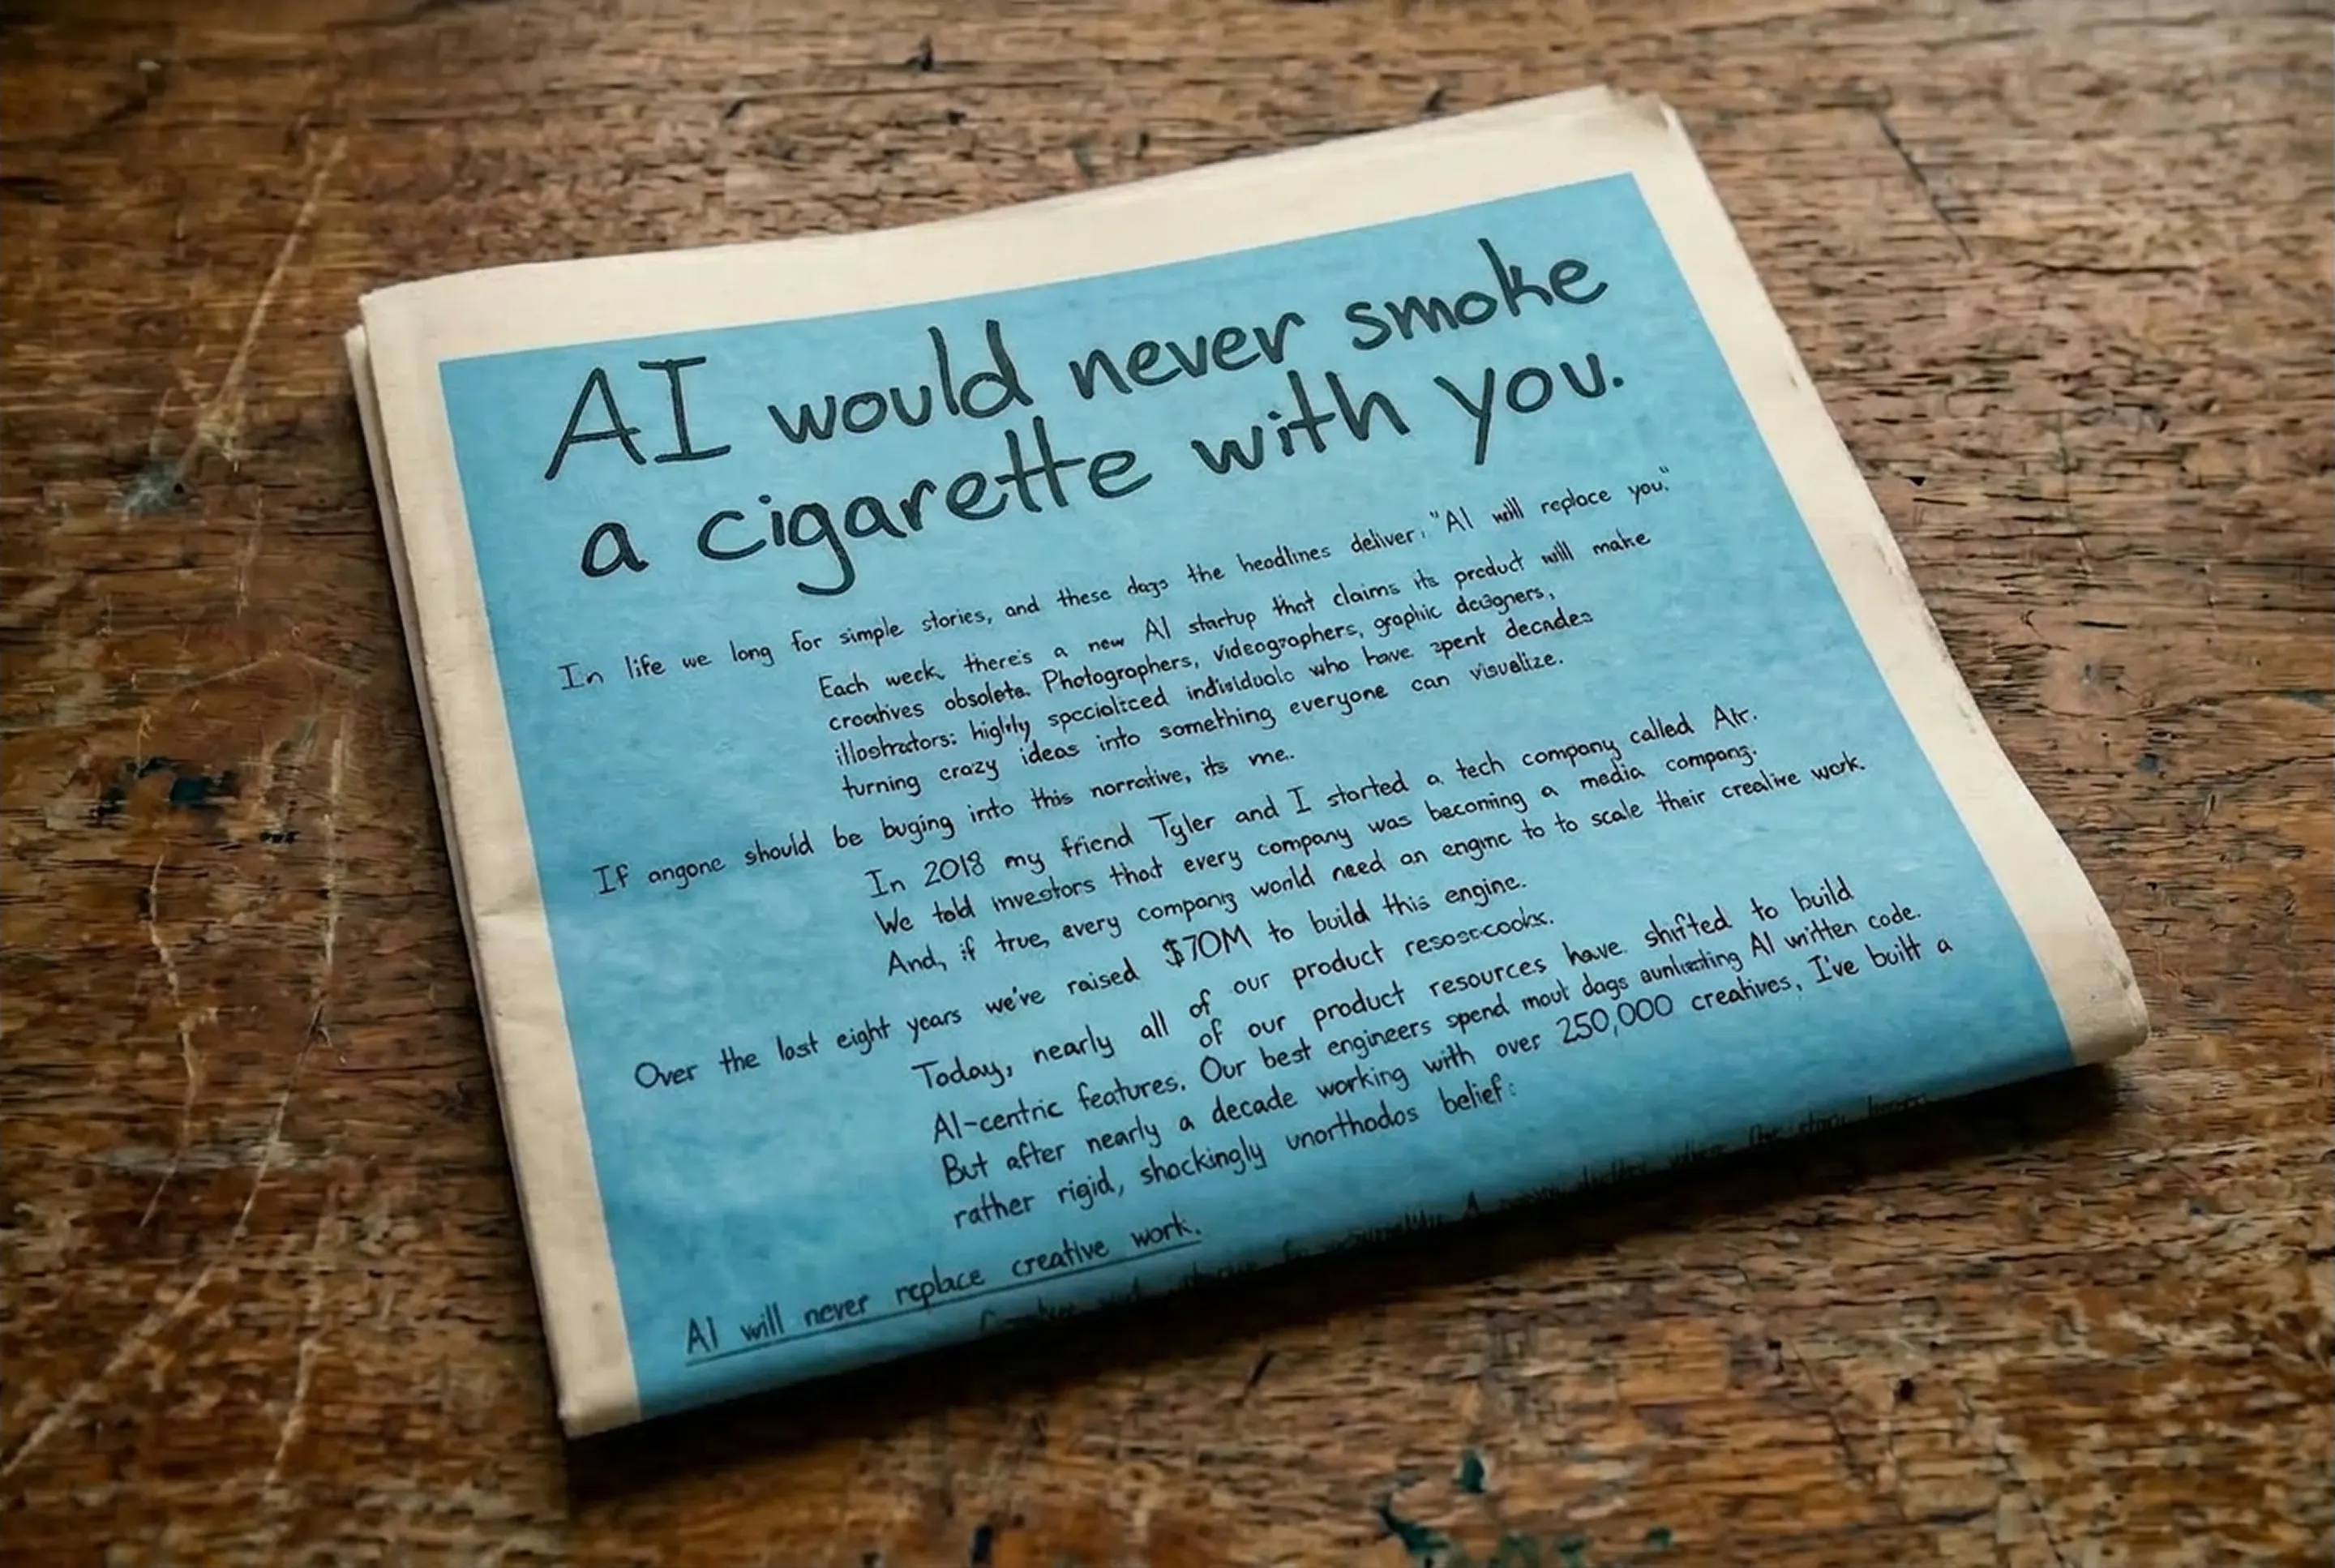 AI would never smoke
a cigarette with you.
In life we long for simple stories, and these days the headlines deliver: "AI will replace you."
Each week, there's a new AI startup that claims its product will make
creatives obsolete. Photographers, videographers, graphic designers,
illostrators: highly specialized individuals who have spent decades
turning crazy ideas into something everyone can visualize.
If angone should be buging into this narrative, its me.
In 2018 my friend Tyler and I started a tech company called Air.
We told investors that every company was becoming a media company.
And, if true, every company would need an engine to to scale their creative work.
Over the last eight years we've raised $70M to build this engine.
Today, nearly all of our product
of our product resources have shifted to build
AI-centric features. Our best engineers spend days AI written code.
But after nearly a decade working with over 250,000 creatives, I've built a
rather rigid, shockingly unorthodos belief:
AI will never replace creative work.